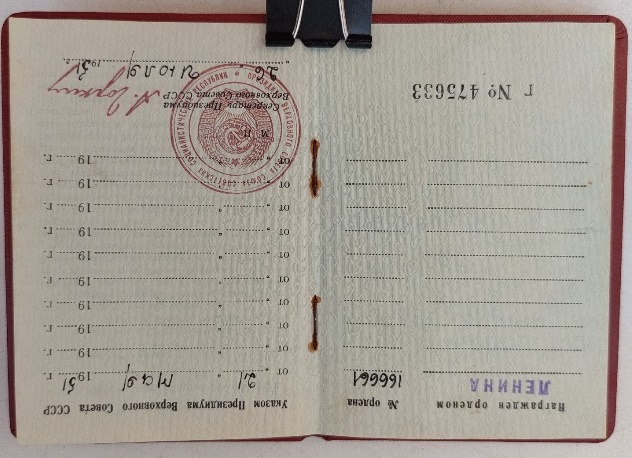 Награжден орденом № ордена
ЛЕНИНА 166661
г № 475633
Указом Президиума Верховного Совета СССР
от „21" мая 1951 г.
от „ " 19 г.
от „ " 19 г.
от „ " 19 г.
от „ " 19 г.
от „ " 19 г.
от „ " 19 г.
от „ " 19 г.
от „ " 19 г.
от „ " 19 г.
М П
Секретарь Президиума
Верховного Совета СССР
А. Горкин
„26" июля 1951 г.
ПРЕЗИДИУМ ВЕРХОВНОГО СОВЕТА СОЮЗА СОВЕТСКИХ СОЦИАЛИСТИЧЕСКИХ РЕСПУБЛИК